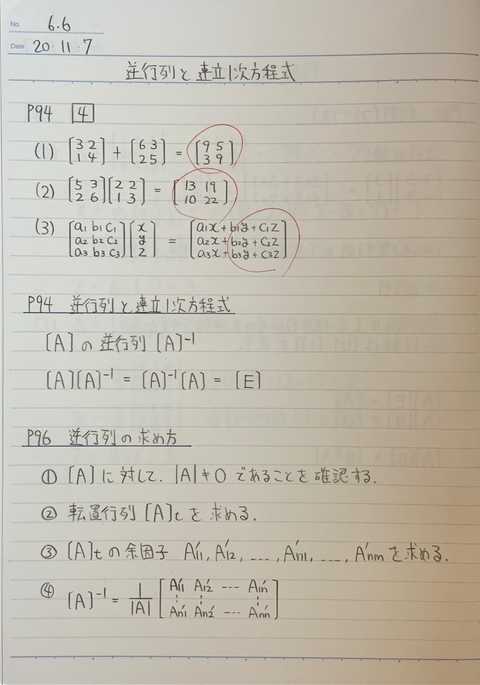 No. 6.6
Date 20・11・7
逆行列と連立1次方程式
P94 [4]
(1) [3 2; 1 4] + [6 3; 2 5] = [9 5; 3 9]
(2) [5 3; 2 6][2 2; 1 3] = [13 19; 10 22]
(3) [a₁ b₁ c₁; a₂ b₂ c₂; a₃ b₃ c₃][x; y; z] = [a₁x+b₁y+c₁z; a₂x+b₂y+c₂z; a₃x+b₃y+c₃z]
P94 逆行列と連立1次方程式
[A]の逆行列[A]⁻¹
[A][A]⁻¹ = [A]⁻¹[A] = [E]
P96 逆行列の求め方
① [A]に対して、|A|≠0であることを確認する.
② 転置行列[A]tを求める.
③ [A]tの余因子 A'11, A'12, ---, A'n1, ---, A'nmを求める.
④ [A]⁻¹ = 1/|A| [A'11 A'12 --- A'1n; ⋮ ⋮ ⋮; A'n1 A'n2 --- A'nn]